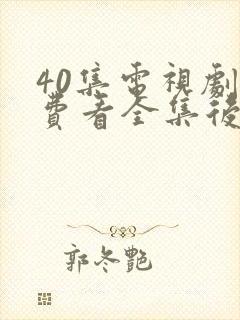 40集電視劇
費看全集後
郭冬艷